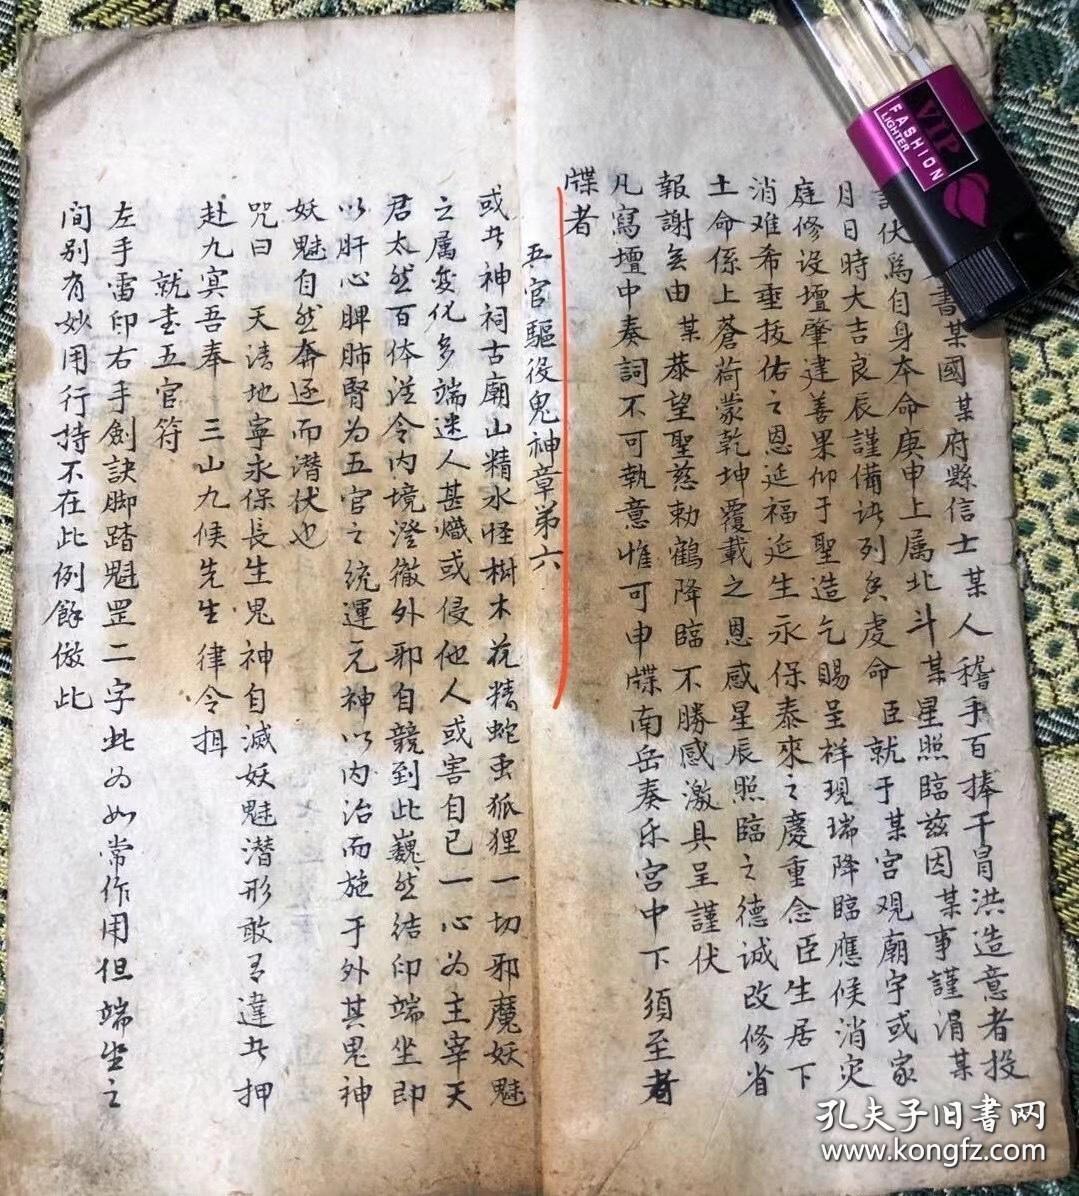 書某國某府縣信士某人稽手百捧干冒洪造意者投
伏爲自身本命庚申上属北斗某星照臨兹因某事謹涓某
月日時大吉良辰謹備訨列負虔命臣就于某宮观廟宇或家
庭修设壇肇建善果仰于聖造乞賜呈祥現瑞降臨應候消灾
消难希垂拔佑之恩延福延生永保泰來之慶重念臣生居下
土命係上蒼荷蒙乾坤覆載之恩感星辰照臨之德诚改修省
報謝無由某恭望聖慈勅鶴降臨不勝感激具呈謹伏
凡寫壇中奏詞不可執意惟可申牒南岳奏乐宮中下須至者
牒者
五官驅役鬼神章第六
或於神祠古廟山精水怪樹木花精蛇虫狐狸一切邪魔妖魅
之属变化多端迷人甚熾或侵他人或害自己一心为主宰天
君太然百体從令内境澄徹外邪自競到此巍然结印端坐即
以肝心脾肺腎为五官之统運元神以内治而施于外其鬼神
妖魅自然奔逐而潜伏也
咒曰 天清地寧永保長生鬼神自滅妖魅潜形敢有違於押
赴九冥吾奉 三山九候先生律令揖
就书五官符
左手雷印右手劍訣脚踏魁罡二字此为如常作用但端坐之
間别有妙用行持不在此例餘倣此
VIP
FASHION
LIGHTER
孔夫子旧书网
www.kongfz.com